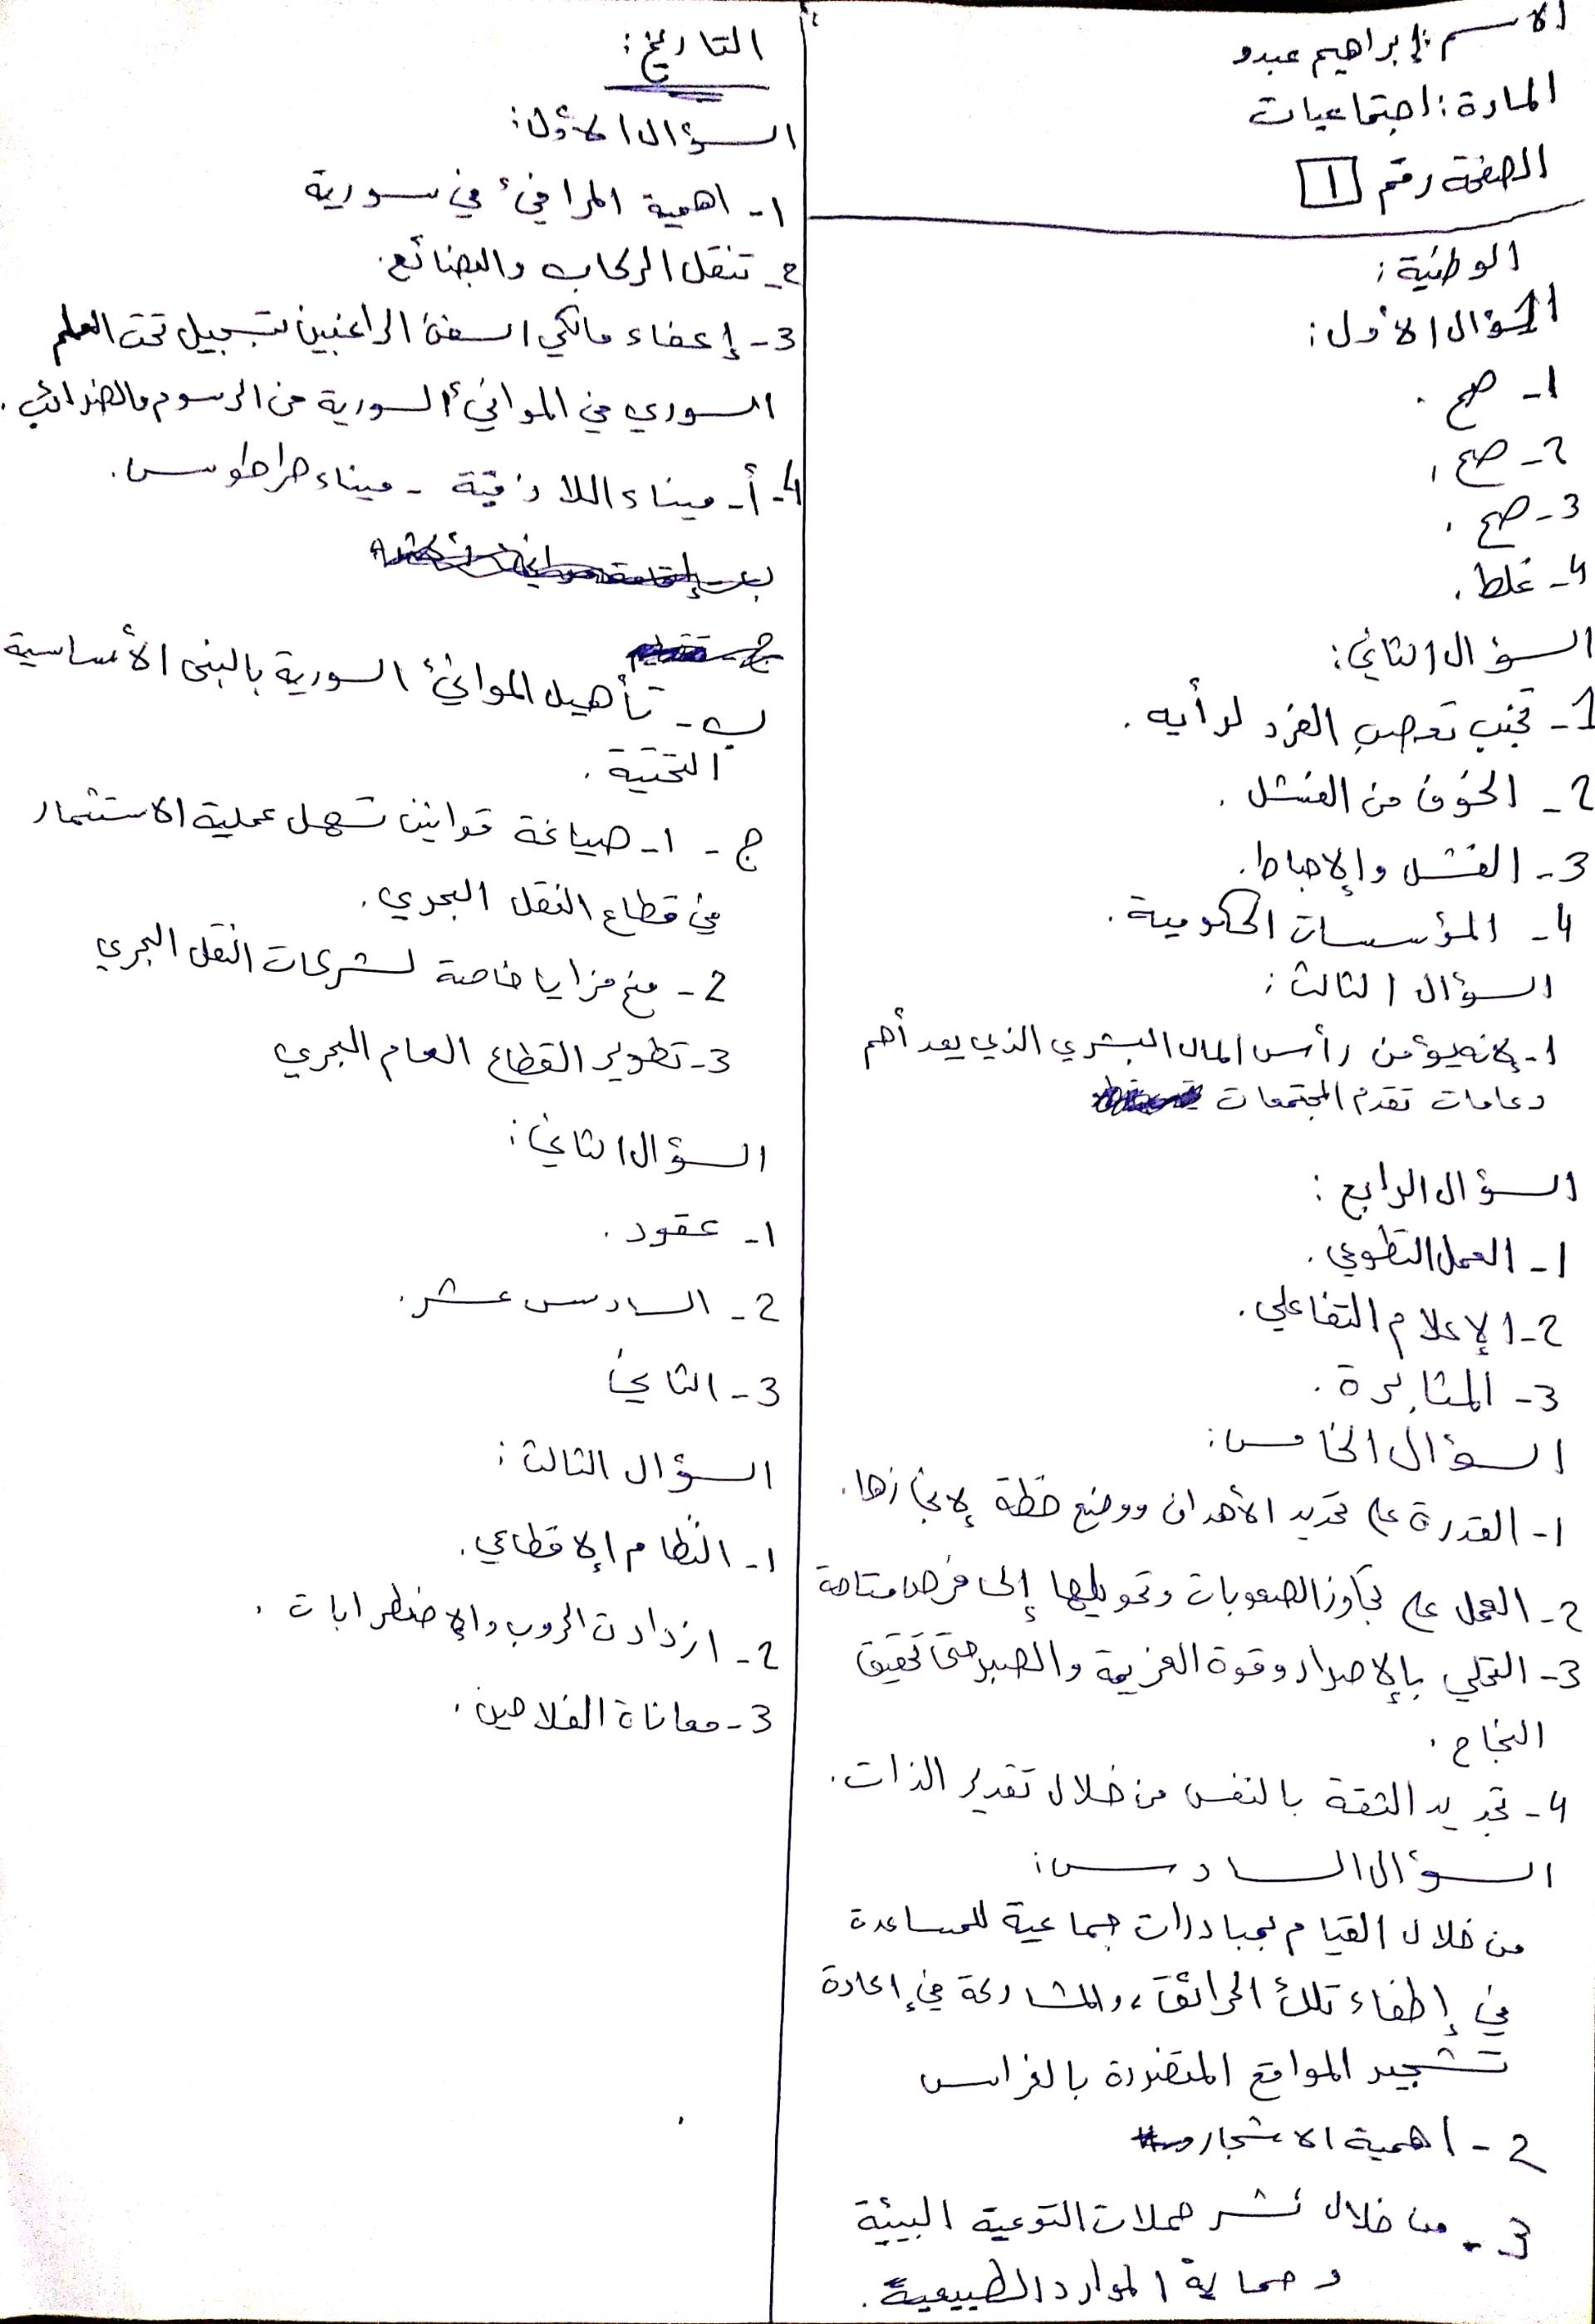 الاسم: إبراهيم عبدو
المادة: اجتماعيات
الصفحة رقم 1
الوطنية:
السؤال الأول:
1- صح.
2- صح.
3- صح.
4- غلط.
السؤال الثاني:
1- تجنب تعصب الفرد لرأيه.
2- الخوف من الفشل.
3- الفشل والإحباط.
4- المؤسسات الحكومية.
السؤال الثالث:
1- لإنه يؤمن رأس المال البشري الذي يعد أهم
دعامات تقدم المجتمعات
السؤال الرابع:
1- العمل التطوعي.
2- الإعلام التفاعلي.
3- المثابرة.
السؤال الخامس:
1- القدرة على تحديد الأهداف ووضع خطة لإنجازها.
2- العمل على تجاوز الصعوبات وتحويلها إلى فرص متاحة
3- التحلي بالإصرار وقوة العزيمة والصبر حتى تحقيق
النجاح.
4- تجديد الثقة بالنفس من خلال تقدير الذات.
السؤال السادس:
من خلال القيام بمبادرات جماعية للمساعدة
في إطفاء تلك الحرائق، والمشاركة في إعادة
تشجير المواقع المتضررة بالغراس
2- اهمية الاشجار
3- من خلال نشر حملات التوعية البيئية
وحماية الموارد الطبيعية.
التاريخ:
السؤال الأول:
1- اهمية المرافئ في سورية
2- تنقل الركاب والبضائع.
3- إعفاء مالكي السفن الراغبين بتسجيل تحت العلم
السوري في الموانئ السورية من الرسوم والضرائب.
4- أ- ميناء اللاذقية - ميناء طرطوس.
ب- تأهيل الموانئ السورية بالبنى الأساسية
التحتية.
ج- 1- صياغة قوانين تسهل عملية الاستثمار
في قطاع النقل البحري.
2- منح مزايا خاصة لشركات النقل البحري
3- تطوير القطاع العام البحري
السؤال الثاني:
1- عقود.
2- السادس عشر.
3- الثاني
السؤال الثالث:
1- النظام الإقطاعي.
2- ازدادت الحروب والإضطرابات.
3- معاناة الفلاحين.